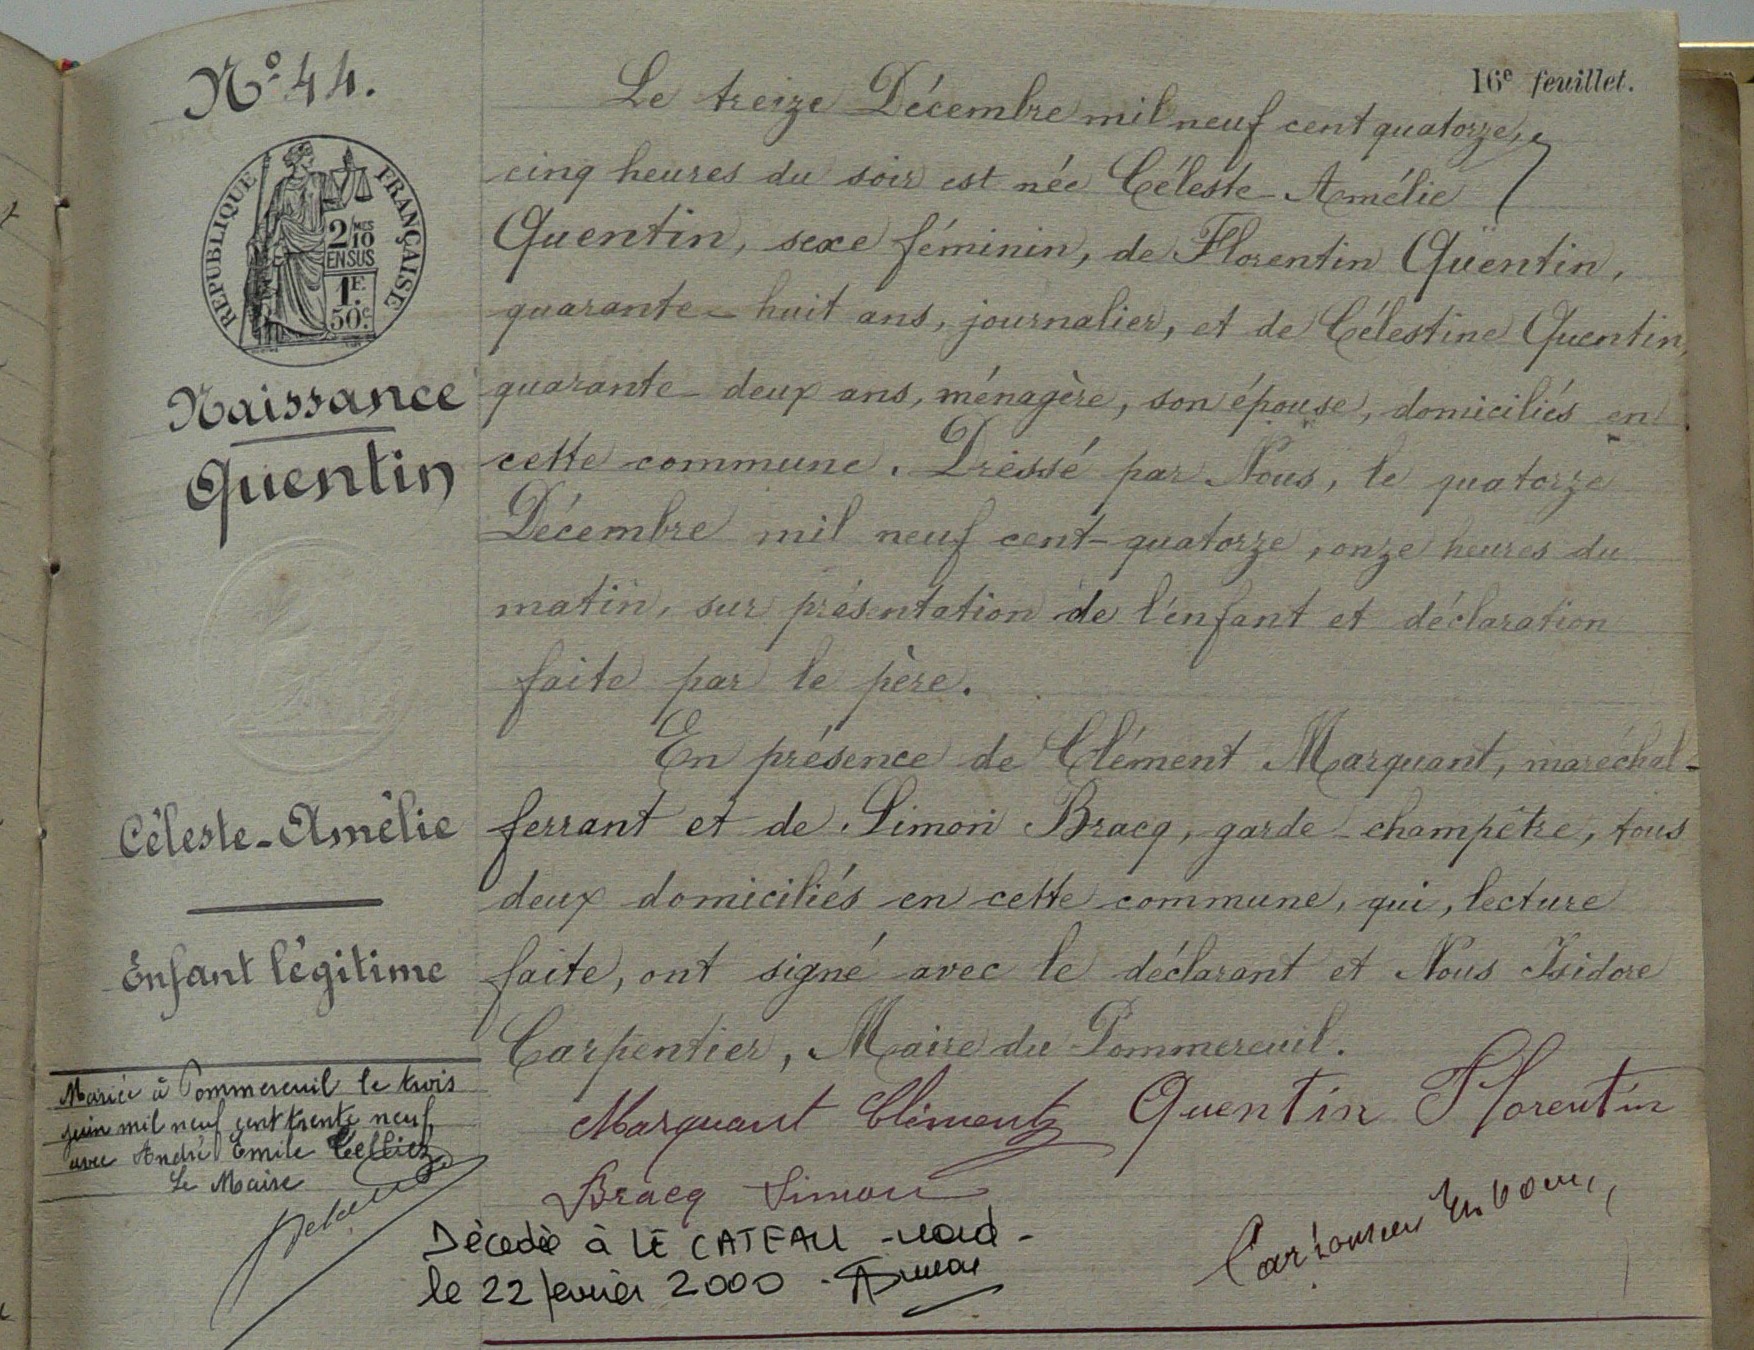 N° 44.
RÉPUBLIQUE FRANÇAISE
2/MES
10
EN SUS
1F.
50c.
Naissance
Quentin
Céleste-Amélie
Enfant légitime
Mariée à Pommereuil le trois
juin mil neuf cent trente neuf,
avec André Emile Telliez
Le Maire
16e feuillet.
Le treize Décembre mil neuf cent quatorze,
cinq heures du soir est née Céleste-Amélie
Quentin, sexe féminin, de Florentin Quentin,
quarante-huit ans, journalier, et de Célestine Quentin,
quarante-deux ans, ménagère, son épouse, domiciliés en
cette commune. Dressé par Nous, le quatorze
Décembre mil neuf cent-quatorze, onze heures du
matin, sur présentation de l'enfant et déclaration
faite par le père.
En présence de Clément Marquant, maréchal-
ferrant et de Simon Bracq, garde-champêtre, tous
deux domiciliés en cette commune, qui, lecture
faite, ont signé avec le déclarant et Nous Isidore
Carpentier, Maire du Pommereuil.
Marquant Clément Quentin Florentin
Bracq Simon
Décedée à LE CATEAU - nord -
le 22 fevrier 2000 -